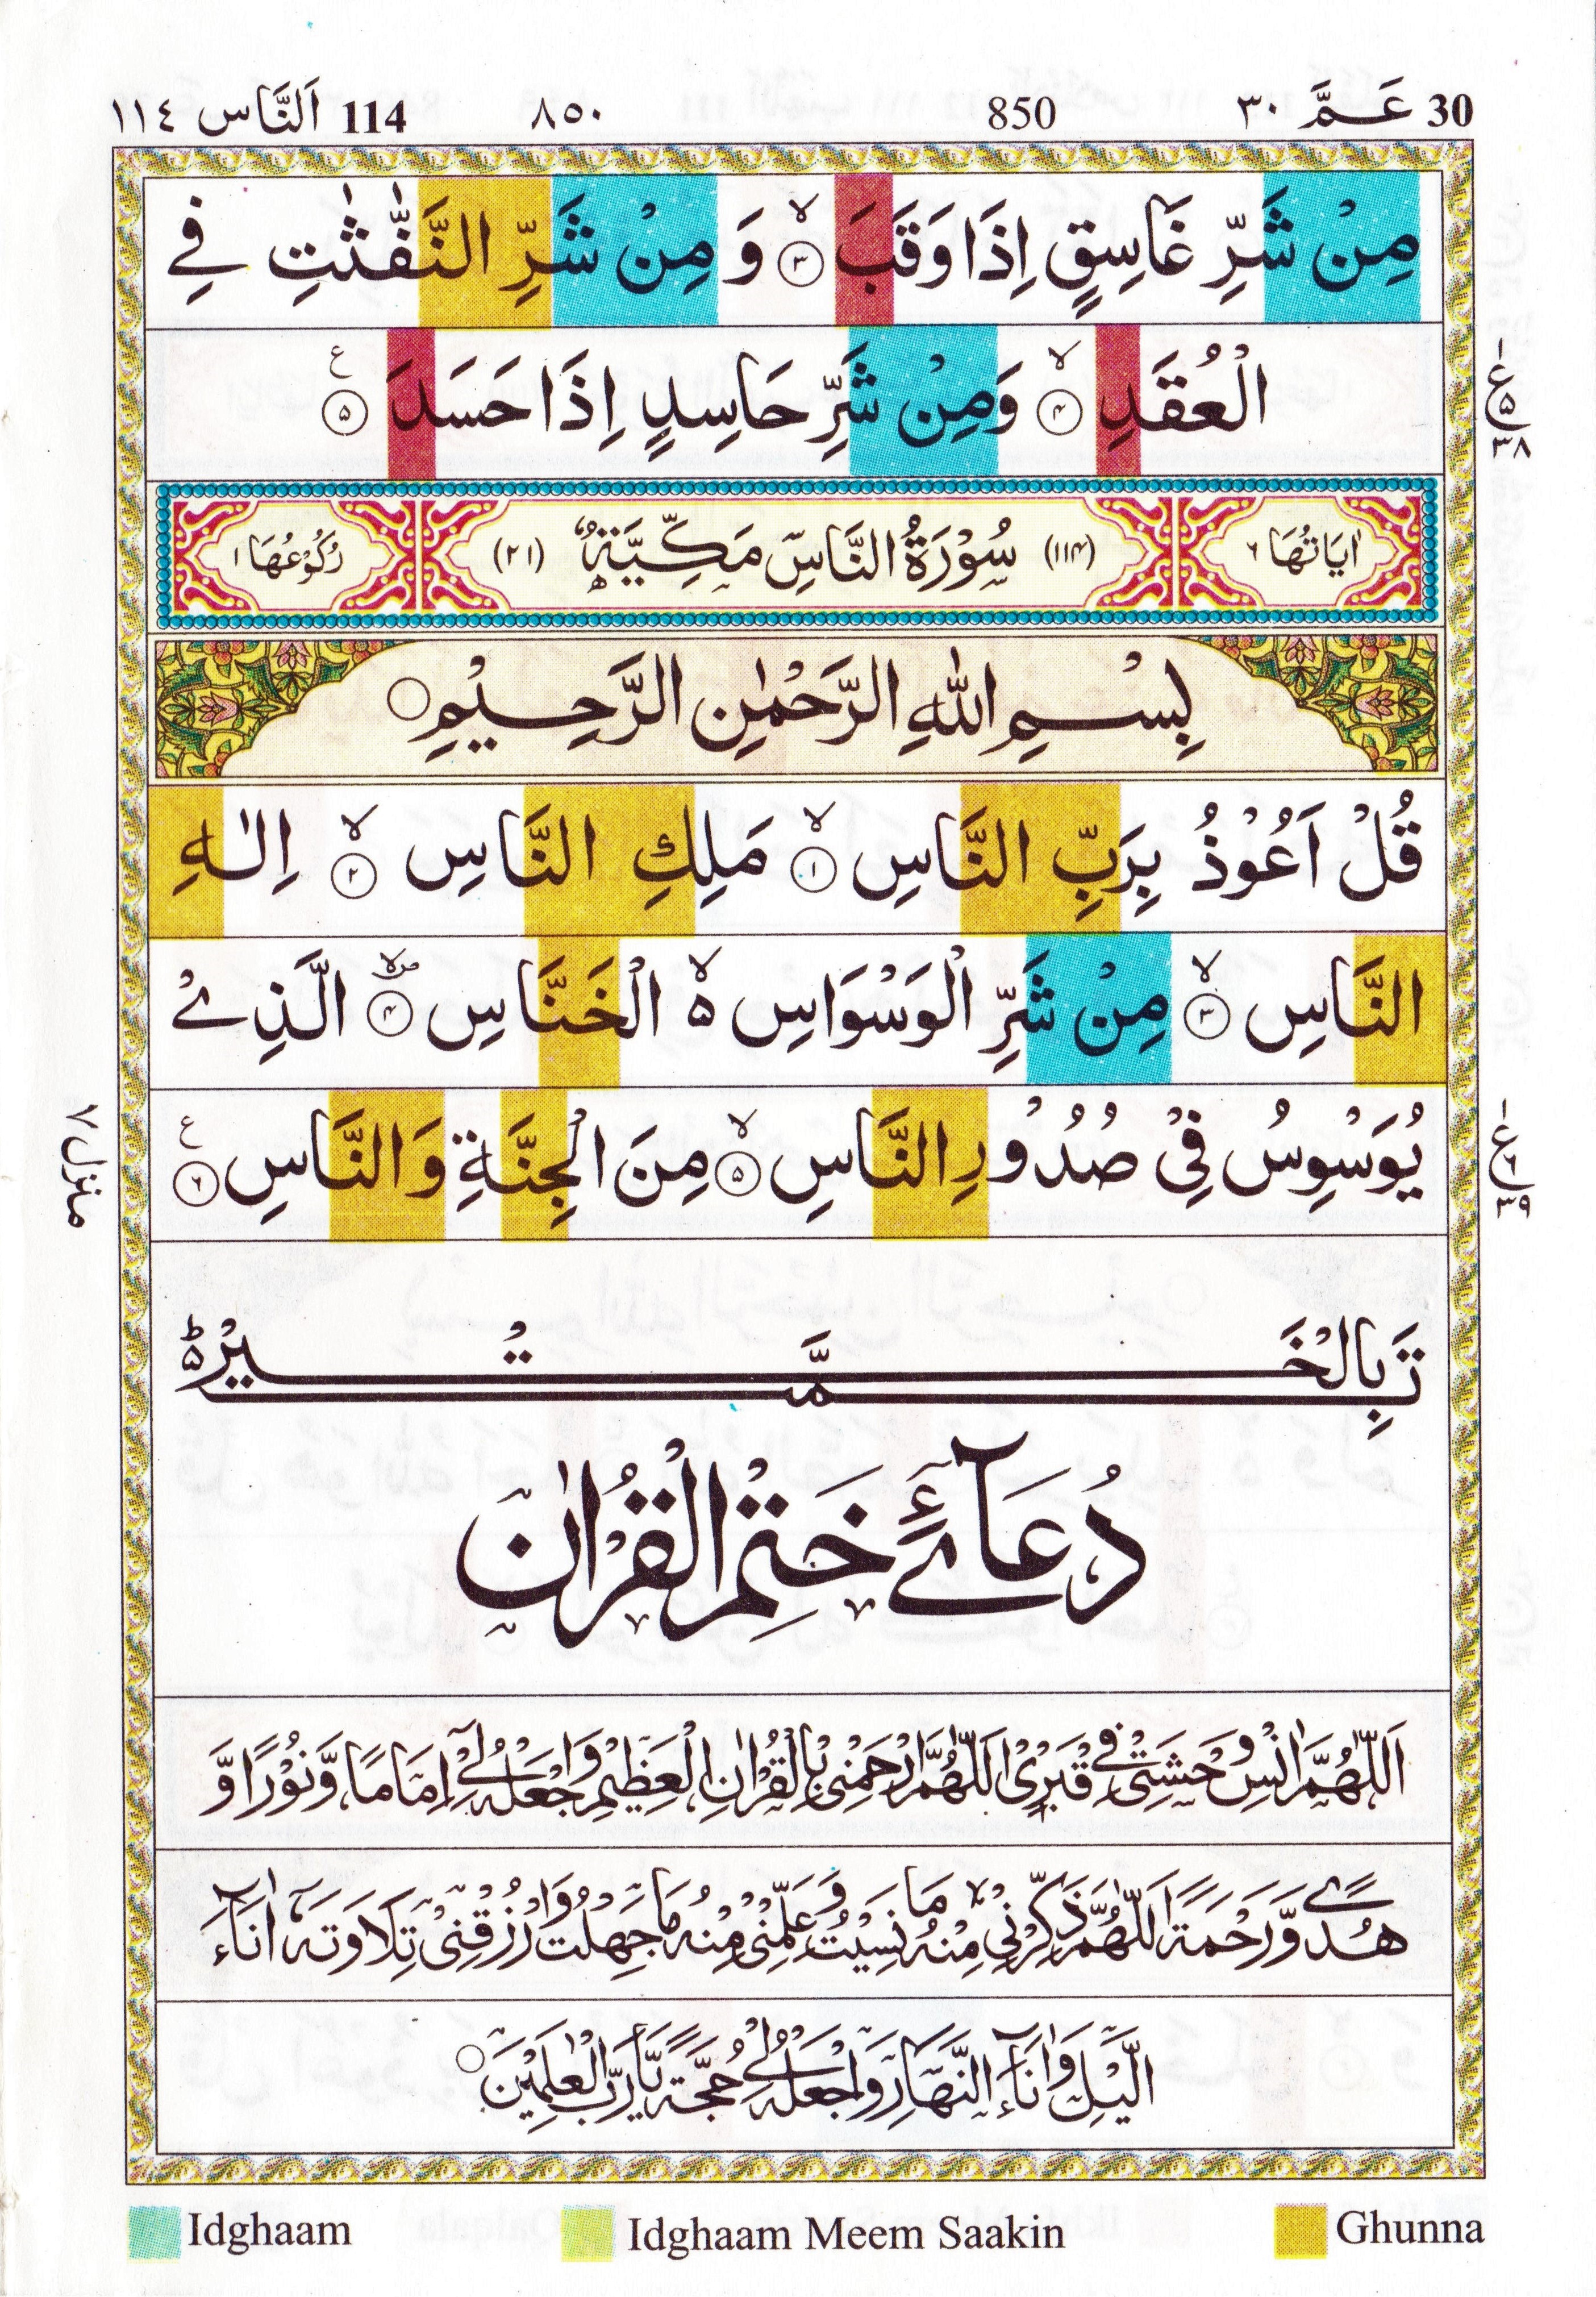 30 عَمَّ ٣٠ 850 ٨٥٠ 114 اَلنَّاس ١١٤
مِنْ شَرِّ غَاسِقٍ اِذَا وَقَبَ ۙ﴿۳﴾ وَ مِنْ شَرِّ النَّفّٰثٰتِ فِے
الْعُقَدِ ۙ﴿۴﴾ وَمِنْ شَرِّ حَاسِدٍ اِذَا حَسَدَ ﴿۵﴾ ع
ع ۱ ۵ ۳۸
اٰيَاتُهَا ٦ (۱۱۴) سُوْرَةُ النَّاسِ مَكِّيَّةٌ (۲۱) رُكُوْعُهَا ۱
بِسْمِ اللّٰهِ الرَّحْمٰنِ الرَّحِيْمِ ○
قُلْ اَعُوْذُ بِرَبِّ النَّاسِ ۙ﴿۱﴾ مَلِكِ النَّاسِ ۙ﴿۲﴾ اِلٰهِ
النَّاسِ ۙ﴿۳﴾ مِنْ شَرِّ الْوَسْوَاسِ ۵ۙ الْخَنَّاسِ ۪ۙ﴿۴﴾ الَّذِیْ
يُوَسْوِسُ فِیْ صُدُوْرِ النَّاسِ ۙ﴿۵﴾ مِنَ الْجِنَّةِ وَ النَّاسِ ﴿۶﴾ ع
ع ۱ ۶ ۳۹
منزل ۷
تَمَّتْ بِالْخَيْرِ ۵ؕ
دُعَآئے خَتْمِ الْقُرْاٰن
اَللّٰهُمَّ اٰنِسْ وَحْشَتِیْ فِیْ قَبْرِیْ اَللّٰهُمَّ ارْحَمْنِیْ بِالْقُرْاٰنِ الْعَظِيْمِ وَاجْعَلْهُ لِیْ اِمَامًا وَّنُوْرًا وَّ
هُدًی وَّرَحْمَةً اَللّٰهُمَّ ذَكِّرْنِیْ مِنْهُ مَا نَسِيْتُ وَعَلِّمْنِیْ مِنْهُ مَا جَهِلْتُ وَارْزُقْنِیْ تِلَاوَتَهٗ اٰنَآءَ
الَّيْلِ وَاٰنَآءَ النَّهَارِ وَاجْعَلْهُ لِیْ حُجَّةً يَّا رَبَّ الْعٰلَمِيْنَ ○
Idghaam Idghaam Meem Saakin Ghunna